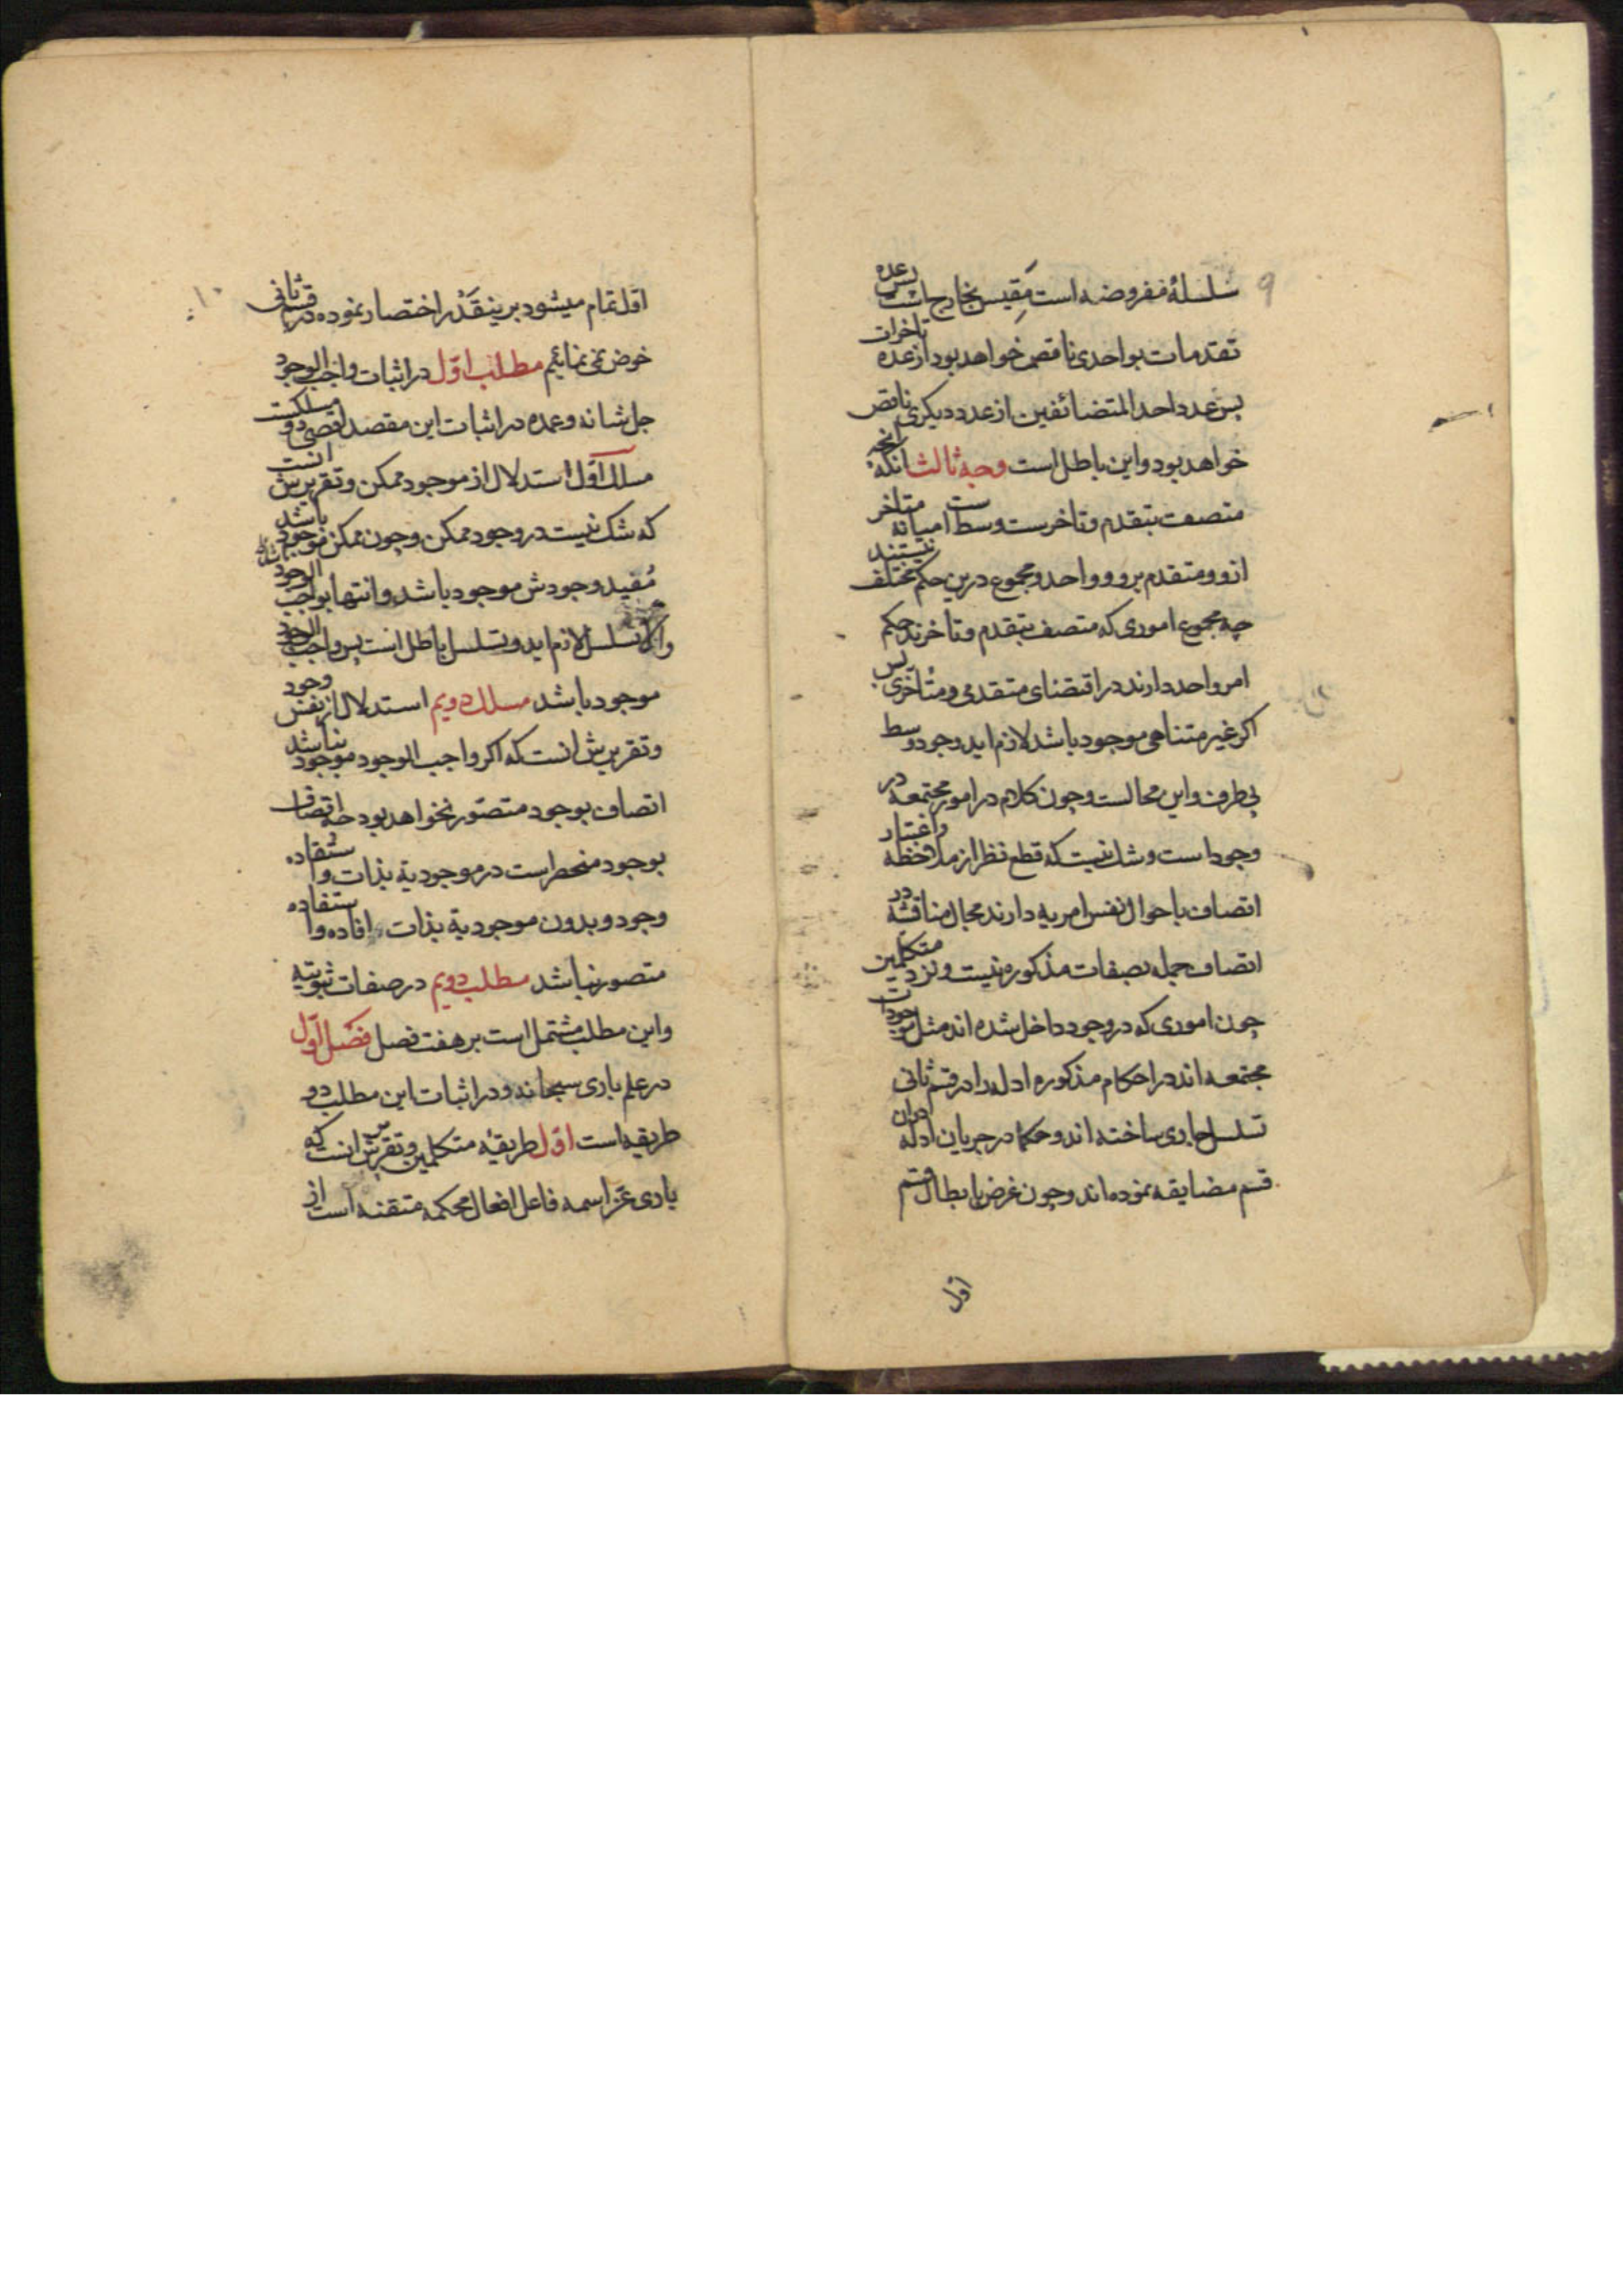 ۹
سلسلهٔ مفروضه است مقیس بخارج است پس عده
تقدمات بواحدی ناقص خواهد بود از عده تاخرات
پس عدد احد المتضائفین از عدد دیکری ناقص
خواهد بود و این باطل است وجه ثالث آنکه انچه
متصف بتقدم و تاخرست وسط است میانه متاخر
ازو و متقدم برو و واحد و مجموع درین حکم مختلف نیستند
چه مجموع اموری که متصف بتقدم و تاخرند حکم
امر واحد دارند در اقتضای متقدمی و متاخری پس
اکر غیر متناهی موجود باشد لازم اید وجود وسط
بی طرف و این محالست و چون کلام در امور مجتمعه در
وجود است و شک نیست که قطع نظر از ملاحظه و اعتبار
اتصاف باحوال نفس امریه دارند مجال مناقشه در
اتصاف جمله بصفات مذکوره نیست و نزد متکلمین
چون اموری که در وجود داخل شده اند مثل موجودات
مجتمعه اند در احکام مذکوره ادله را در قسم ثانی
تسلسل جاری ساخته اند و حکما در جریان ادله دران
قسم مضایقه نموده اند و چون غرض بابطال قسم
اول
۱۰
اول تمام میشود برینقدر اختصار نموده در قسم ثانی
خوض نمی نمائیم مطلب اول در اثبات واجب الوجود
جل شانه و عمده در اثبات این مقصد اقصی دو مسلکست
مسلک اول استدلال از موجود ممکن و تقریرش انست
که شک نیست در وجود ممکن و چون ممکن موجود باشد
مفید وجودش موجود باشد و انتها بواجب الوجود
والا تسلسل لازم اید و تسلسل باطل است پس واجب الوجود
موجود باشد مسلک دویم استدلال از نفس وجود
و تقریرش انست که اکر واجب الوجود موجود نباشد
اتصاف بوجود متصور نخواهد بود چه اتصاف
بوجود منحصر است در موجودیة بذات و استفاده
وجود و بدون موجودیة بذات افاده و استفاده
متصور نباشد مطلب دویم در صفات ثبوتیه
و این مطلب مشتمل است بر هفت فصل فصل اول
در علم باری سبحانه و در اثبات این مطلب دو
طریقه است اول طریقهٔ متکلمین و تقریرش انست که
باری عز اسمه فاعل افعال محکمه متقنه است از